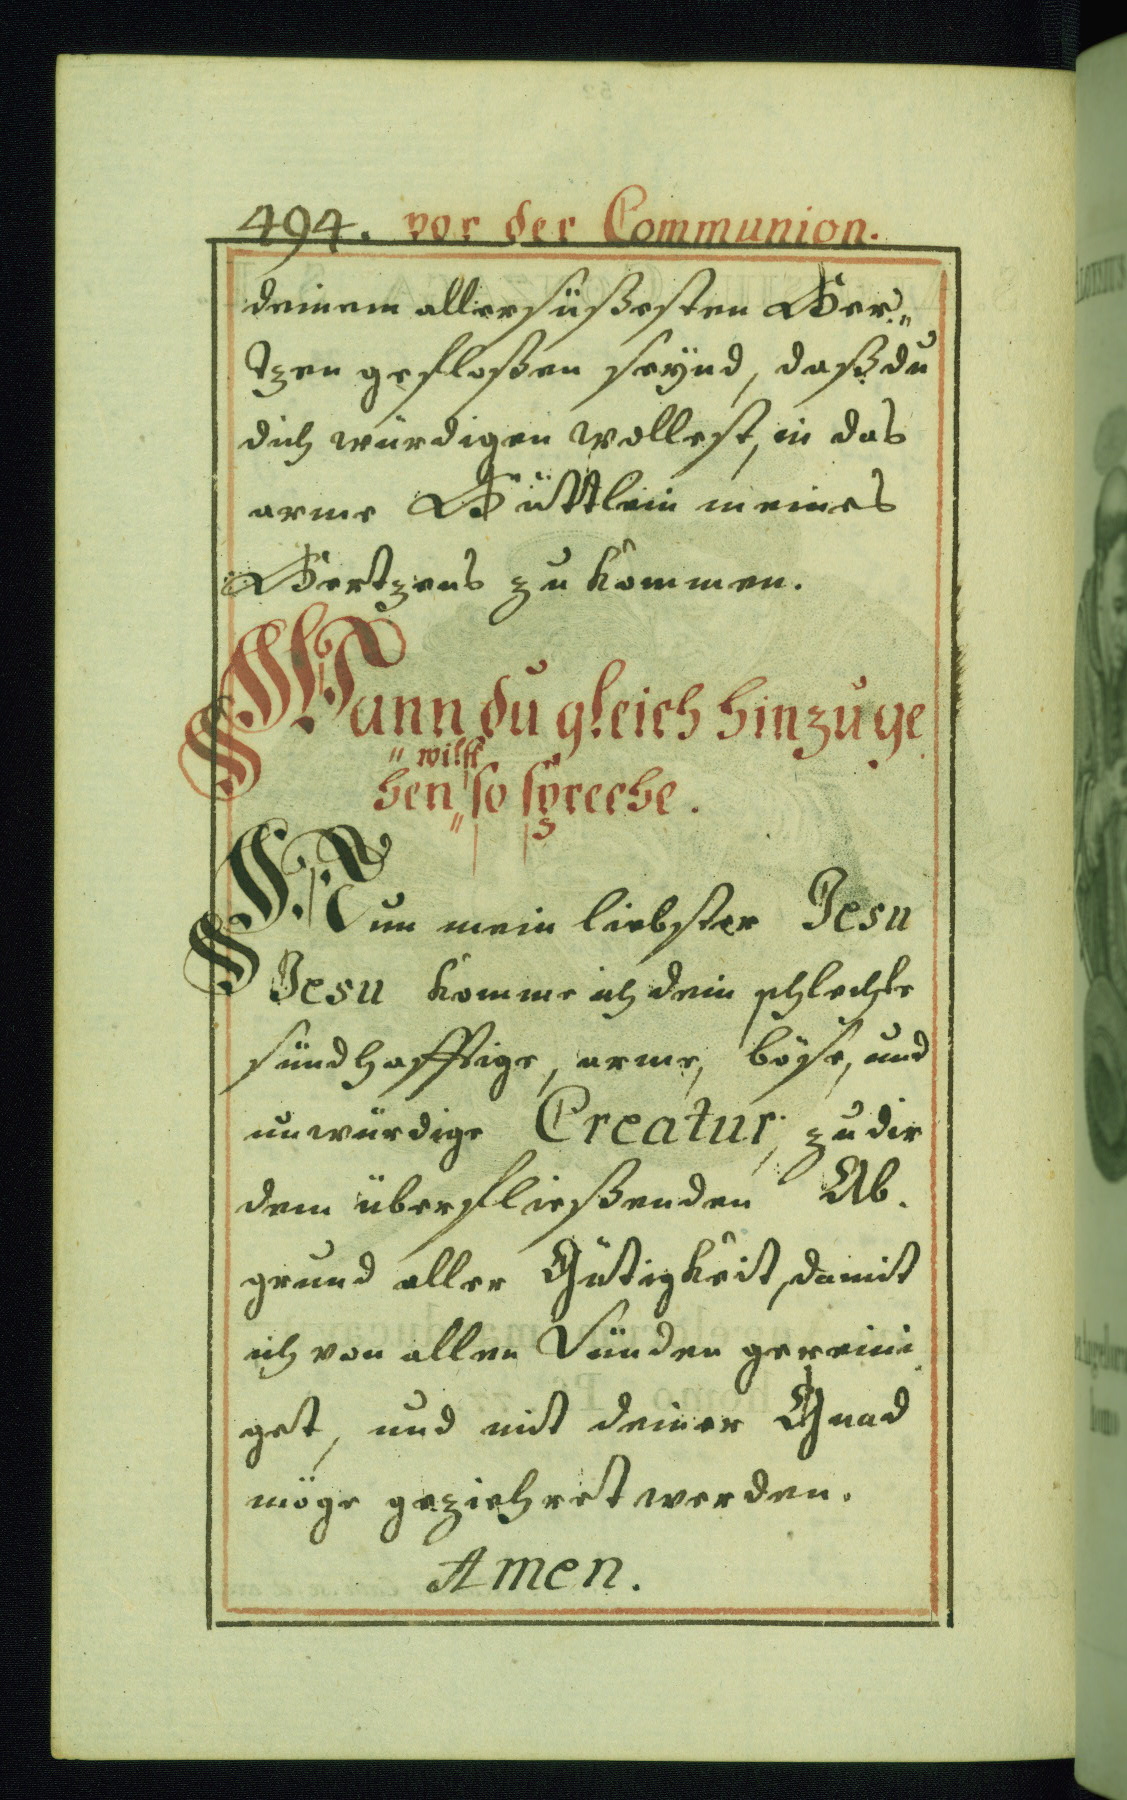 494. vor der Communion.
deinem allersüßesten Her„
tzen gefloßen seÿnd, daß du
dich würdigen wollest, in das
arme Hüttlein meines
Hertzens zu kommen.
Wann du gleich hinzu ge
„ wilst
hen„ so spreche.
Nun mein liebster Jesu
Jesu komme ich dein schlechte
sündhafftige, arme, böse, und
unwürdige Creatur, zu dir
dem überfließenden Ab.
grund aller Gütigkeit, damit
ich von allen Sünden gereini
get, und mit deiner Gnad
möge geziehret werden.
Amen.